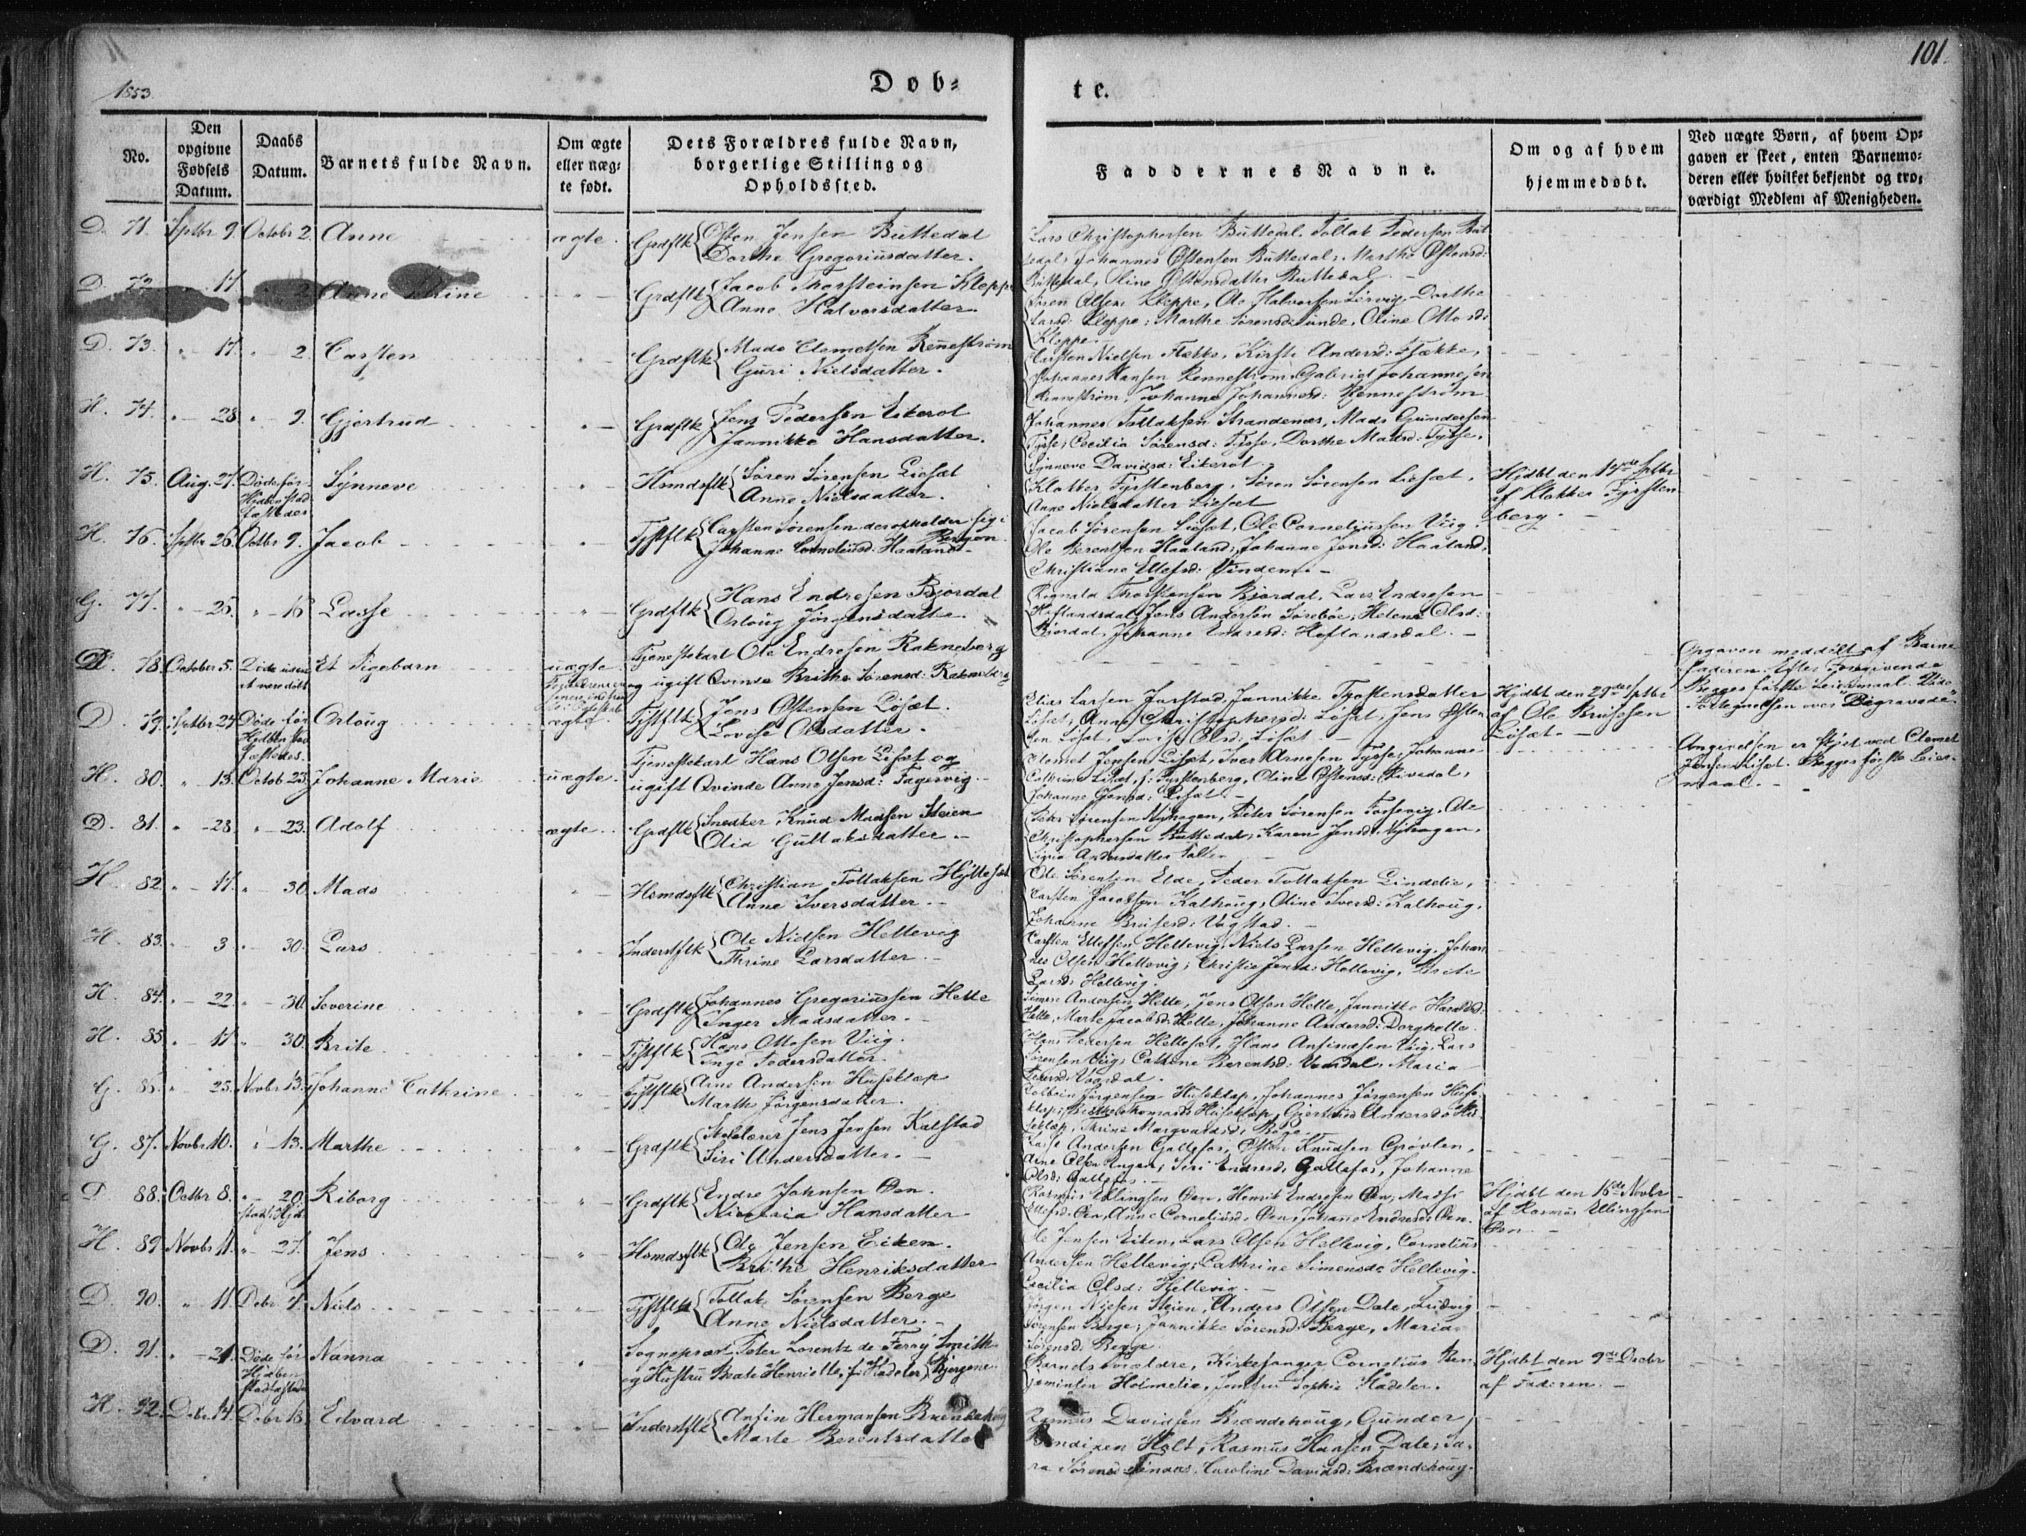 1853.
Døb-
te.
101.
No.
Den opgivne Fødsels Datum.
Daabs Datum.
Barnets fulde Navn.
Om ægte eller uæg-te født.
Dets Forældres fulde Navn, borgerlige Stilling og Opholdssted.
Faddernes Navne.
Om og af hvem hjemmedøbt.
Ved uægte Børn, af hvem Op-gaven er skeet, enten Barnemo-deren eller hvilket bekjendt og tro-værdigt Medlem af Menigheden.
D. 71. Septbr 9. Octobr 2. Anne ægte. Grdflk Østen Jensen Buttedal
Dorthe Gregoriusdatter.
Lars Christophersen Buttedal, Tollak Pedersen But
tedal, Johannes Østensen Buttedal, Marthe Østensd:
Buttedal, Oline Østensdatter Buttedal.
D. 72. " 17 " 2 Anne Trine " Grdftlk Jacob Thorsteinsen Kleppe
Anne Halvorsdatter.
Kleppe, Ole Halvorsen Leirvig, Dorthe
Larsd: Kleppe, Marthe Sørensd: Sunde, Oline
Kleppe.
D. 73. " 17 " 2. Carsten " Grdftlk Mads Clemetsen Rennestrøm
Guri Nielsdatter.
Carsten Nielsen Flekke, Kirsti Andersd: Flække,
Johannes Hansen Rennestrøm, Gabriel Johannesen
Rennestrøm, Johanne Johannesd: Rennestrøm.
H. 74. " 28 " 9. Gjertrud " Grdftlk Jens Pedersen Eikerol
Jannikke Hansdatter.
Johannes Tollaksen Strandenæs, Mads Gundersen
Tysse, Cecilia Sørensd: Tysse, Dorthe Madsd: Tysse,
Synneve Davidsd: Eikerol.
H. 75. Aug. 27. Døde før Hjdben stad fæstedes Synneve " Hsmdsftlk Søren Sørensen Lisæt
Anne Nielsdatter.
Klokker Fyrstenberg, Søren Sørensen Lisæt,
Anne Nielsdatter Lisæt
Hjdbt den 14de Septbr
af Klokker Fyrsten
berg.
H. 76. Septbr 26. Octbr 9. Jacob " Tjftlk Carsten Sørensen der opholder sig i
Bergen
Johanne Corneliusd: Haaland
Jacob Sørensen Lisæt, Ole Corneliussen Viig,
Ole Berentsen Haaland, Johanne Jensd: Haaland,
Christiane Ellefsd: Vindem.
G. 77. " 25. " 16 Lasse " Grdftlk Hans Endresen Bjordal
Ortoug Jørgensdatter
Rognald Thorstensen Bjordal, Lars Endresen
Høflandsdal, Jens Andersen Sørebøe, Helene Olsd:
Bjordal, Johanne Endresd: Høflandsdal.
78. October 5. Døde uden at være døbt Et Pigebarn uægte Tjenestekarl Ole Endresen Rakneberg
og ugift Qvinde Brithe Sørensd: Rakneberg
Opgaven meddelt af Barne
faderen. Efter Foregivende
Begges første Leiermaal. Vide
Antegnelsen over "Begravede"
D. 79. Septbr 24 Døde før Hjdben stadfæstedes Ortoug ægte. Tjftlk Jens Østensen Løsæt.
Lovise Olsdatter.
Elias Larsen Jarstad, Jannikke Thorstensdatter
Løsæt, Anne Christophersd: Løsæt, Jens Østen
sen Løsæt, Lovise Olsd: Løsæt
Hjdbt den 29de Septbr
af Ole Brusesen
Løsæt.
H. 80. " 13. Octob 23. Johanne Marie uægte. Tjenestekarl Hans Olsen Lisæt og
ugift Qvinde Anne Jensd: Fagervig.
Clemet Jensen Lisæt, Iver Arnesen Tysse, Johanne
Lisæt, f. Fyrstenberg, Oline Østensd: Rivedal,
Johanne Jensd: Lisæt.
Angivelsen er skjet ved Clemet
Jensen Lisæt. Begges første Leier
maal.
D. 81. " 28. " 23. Adolf ægte. Grdftlk Snedker Knud Madsen Steien
Olia Gullaksdatter.
Sørensen Nyhagen, Peter Sørensen Fossevig, Ole
Christophersen Buttedal, Karen Jensd: Nyhagen,
Andersdatter
H. 82. " 17 " 30. Mads " Hsmdsftlk Christian Tollaksen Hyllesæt
Anne Iversdatter.
Ole Sørensen Elde, Peder Tollaksen Lindelie,
Carsten Jacobsen Kalhoug, Oline Iversd: Kalhoug,
Johanne Brusesd: Vagstad.
H. 83. " 3 " 30. Lars " Inderstflk Ole Nielsen Hellevig
Thrine Larsdatter.
Carsten Ellefsen Hellevig, Niels Larsen Hellevig, Johan
nes Olsen Hellevig, Christie Jensd: Hellevig, Brite
Larsd: Hellevig.
H. 84. " 22. " 30. Severine " Grdftlk Johannes Gregoriussen Helle
Inger Madsdatter.
Simen Andersen Helle, Jens Olsen Helle, Jannikke Hansd:
Helle, Marte Jacobsd: Helle, Johanne Andersd: Dorghelle.
H. 85. " 17 " 30. Brite " Tjftlk Hans Ottosen Viig.
Inge Pedersdatter.
Hans Pedersen Hellesæt, Hans Anfinsen Viig, Lars
Sørensen Viig, Cathrine Berentsd: Vaardal, Maria
Pedersd: Vaardal.
G. 86. " 23. Novbr 13. Johanne Cathrine " Tjftlk Arne Andersen Huseklep
Marthe Jørgensdatter.
Kolbein Jørgensen Huseklep, Johannes Jørgensen Huse
klep, Brithe Thomasd: Huseklep, Gjertrud Andersd: Hu
seklep, Thrine Margvardsd: Bøge.
G. 87. Novbr 10. " 13. Marthe " Grdftlk Skolelærer Jens Jensen Kalstad
Siri Andersdatter.
Lasse Andersen Gallefos, Østen Knudsen Grøvlen,
Arne Olsen Ungar, Siri Endresd: Gallefos, Johanne
Olsd: Gallefos.
D. 88. Octbr 8. " 20. stadf: Hjd. Riborg " Grdftlk Endre Johnsen Øen.
Nicoria Hansdatter
Rasmus Ellingsen Øen, Henrik Endresen Øen, Madsi
Ellefsd: Øen, Anne Corneliusd: Øen, Johanne Endresd: Øen.
Hjdbt den 16de Novbr
af Rasmus Ellingsen
Øen
H. 89. Novbr 11. " 27. Jens " Hsmdsftlk Ole Jensen Eiken.
Brithe Henriksdatter
Ole Jensen Eiken, Lars Olsen Hellevig, Cornelius
Andersen Hellevig, Cathrine Simensd: Hellevig.
Cecilia Olsd: Hellevig.
D. 90. " 11. Decbr 4. Niels " Tjftflk Tollak Sørensen Berge
Anne Nielsdatter.
Jørgen Nielsen Steien, Anders Olsen Dale, Ludvig
Sørensen Berge, Jannikke Sørensd: Berge, Maria
Sørensd: Berge.
D. 91. " 21. Døde før Hjdben stadfæstedes Nanna " Sognepræst Peter Lorentz de Ferry Smith
og Hustru Beate Henriette, f. Stadeler, Bjergene
Barnets Forældre, Kirkesanger Cornelius Ben
jaminsen Holmelia, Jomfru Sophie Stadeler.
Hjdbt den 9de Decbr
af Faderen.
H. 92. Decbr 4. Decbr 18. Edvard " Inderstflk Anfin Hermansen Brændehoug
Marte Berentsdatter
Rasmus Davidsen Brændehoug, Gunder
Bendixen Holt, Rasmus Hansen Dale, Sa
ra Sørensd: Tinaas, Caroline Davidsd: Brændehoug.